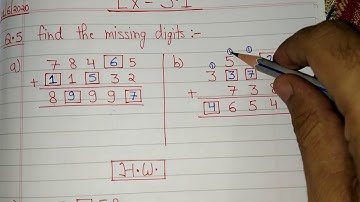 Ex - 3.1
/6/2020
Q.5 find the missing digits :-
a) 7 8 4 6 5
+ 1 1 5 3 2
8 9 9 9 7
b) 5
3 3 7
+ 7 3 8
4 6 5 4
H.W.